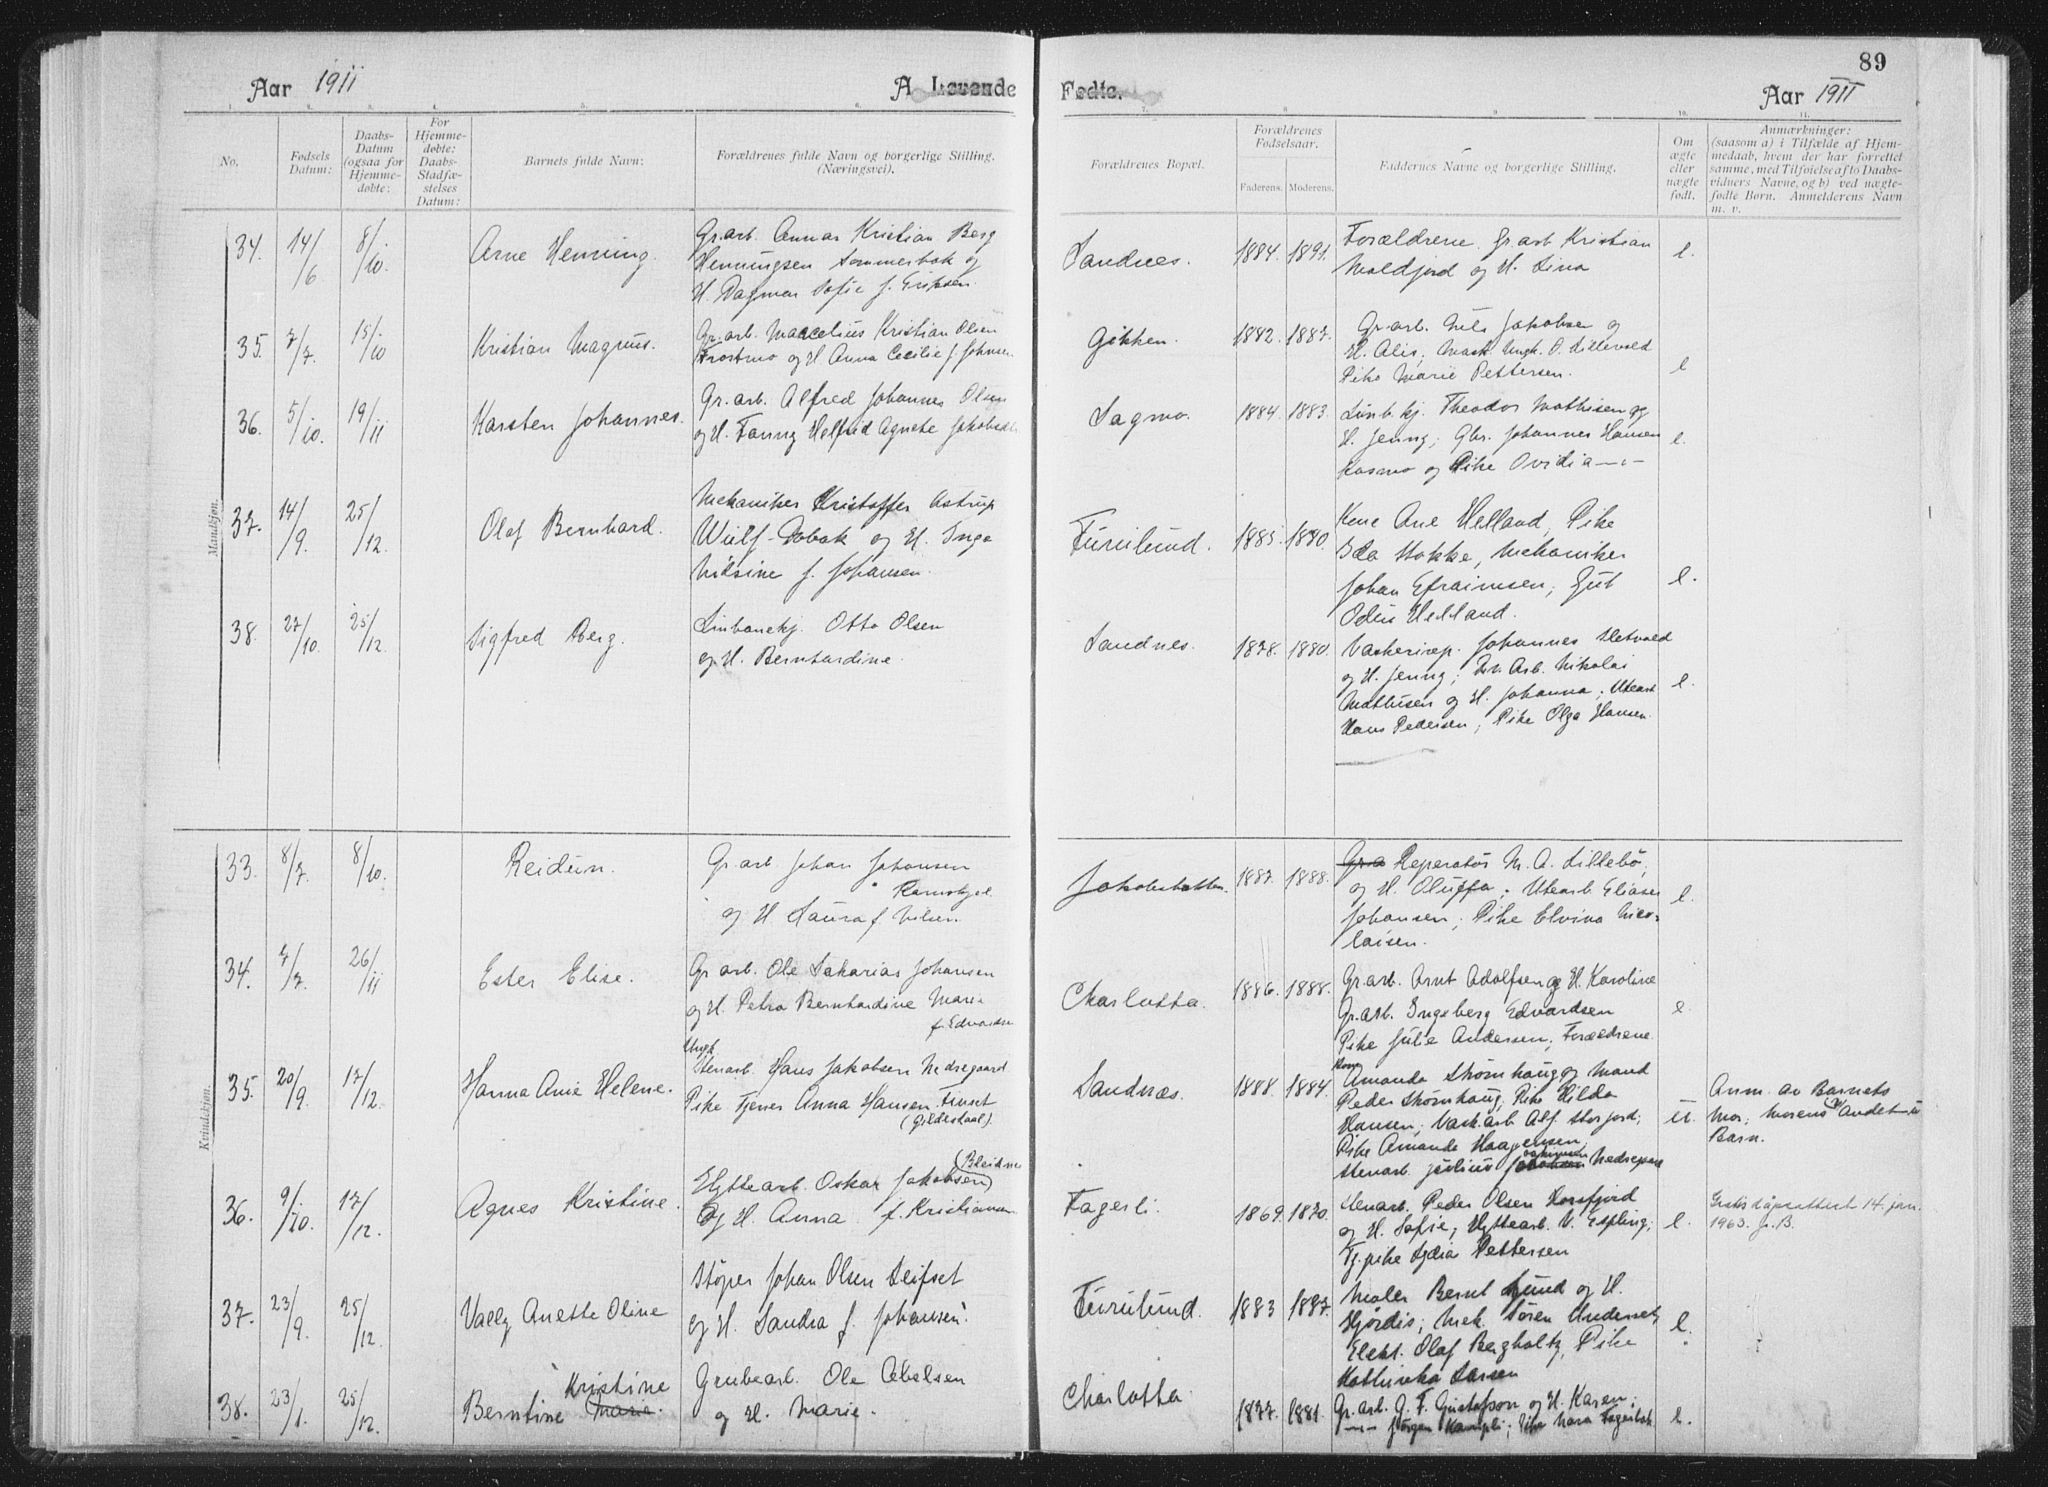 Aar 1911
A. Levende
Fødte.
89
Aar 1911
1. 2. 3. 4. 5. 6. 7. 8. 9. 10. 11.
No.
Fødsels
Datum:
Daabs-
Datum
(ogsaa for
Hjemme-
døbte:
For
Hjemme-
døbte:
Daabs-
Stadfæ-
stelses
Datum:
Barnets fulde Navn:
Forældrenes fulde Navn og borgerlige Stilling.
(Næringsvei).
Forældrenes Bopæl.
Forældrenes
Fødselsaar.
Faderens. Moderens.
Faddernes Navne og borgerlige Stilling.
Om
ægte
eller
uægte
født.
Anmærkninger:
(saasom a) i Tilfælde af Hjem-
medaab, hvem der har forrettet
samme, med Tilføielse af to Daabs-
vidners Navne, og b) ved uægte-
fødte Børn. Anmelderens Navn
m. v.
Mandkjøn.
34. 14/6 8/10. Arne Henning.
Gr.arb. Annar Kristian Berg
Henningsen Sommerbak og
H. Dagmar Sofie f. Eriksen.
Sandnes. 1884. 1891.
Forældrene. Gr.arb Kristian
Moldjord og H. Lina
e.
35. 7/7. 15/10 Kristian Magnus.
Gr.arb. Marcelius Kristian Olsen
Frostmo og H Anna Cecilie f. Johnsen
Gikken. 1882. 1887.
Gr.arb. Nils Jakobsen og
H. Alis; Mask. Ungk. O. Lillevold
Pike Marie Pettersen.
e
36. 5/10. 19/11 Karsten Johannes.
Gr.arb. Alfred Johannes Olsen
og H. Fanny Helfrid Agnete Jakobsdt
Sagmo. 1884. 1883.
Linb.kj. Theodor Mathisen og
H. Jenny; Gbr. Johannes Hansen
Kosmo og Pike Ovidia —"—
e.
37. 14/9. 25/12. Olaf Bernhard.
Mekaniker Kristoffer Astrup
Wulf-Dobak og H. Inga
Nilsine f. Johansen.
Furulund. 1885. 1890.
Kone Ane Helland, Pike
Ida Stokke, Mekaniker
Johan Efraimsen, Gut
Odin Helland.
e.
38. 27/10. 25/12. Sigfred Berg.
Linbanekj. Otto Olsen
og H. Bernhardine.
Sandnes. 1878. 1880.
Vaskerirep. Johannes Hetvold
og H. Jenny; Arb. Nikolai
Mathisen og H. Johanna; Utearb
Hans Pedersen; Pike Olga Hansen.
e.
Kvindekjøn.
33. 8/7. 8/10. Reidun.
Gr.arb. Johan Johansen
Ramskjel
og H. Laura f. Nilsen
Jakobsbakken. 1887. 1888.
Gr.a Reperatør M. A. Lillebö,
og H. Oluffa; Utearb. Elias
Johansen; Pike Elvina Nico-
laisen.
e.
34. 7/7. 26/11 Ester Elise.
Gr arb. Ole Sakarias Johansen
og H. Petra Bernhardine Marie
f. Edvardsen
Charlotta. 1886. 1888.
Gr.arb. Arnt Adolfsen og H. Karoline
Gr.arb. Ingeberg Edvardsen
Pike Julie Andersen; Forældrene.
e
35. 20/9. 17/12. Hanna Anie Helene.
Ungk
Stenarb. Hans Jakobsen Nedregaard
Pike Tjener Anna Hansen
(Gildeskaal).
Sandnæs. 1888. 1884.
Kone
Amanda Strømhaug og Mand
Peder Strømhaug, Pike Hilda
Hansen; Vask.arb Alf. Storjord;
Pike Amanda Haagensen,
Stenarb. Julius Nedregaard
u.
Anm. av Barnets
Mor. Morens andet u
Barn.
36. 9/10. 17/12. Agnes Kristine.
(Bleiknes)
Hyttearb. Oskar Jakobsen
og H. Anna f. Kristiansen
Fagerli. 1869. 1870.
Stenarb. Peder Olsen Torsfjord
og H. Sofie, Hyttearb. V. Espling;
Tj.pike Lydia Pettersen
e.
Gratis dåpsattest 14. jan.
1963. J.B.
37. 23/9. 25/12. Vally Anette Oline
Støper Johan Olsen Leifset
og H. Sandra f. Johansen.
Furulund. 1883 1887.
Maler Bernt Lund og H.
Hjørdis, Mek. Søren Andersen
Elekt. Olaf Bergholtz, Pike
Kathinka Larsen
e.
38. 23/1. 25/12.
Kristine
Berntine Marie.
Grubearb. Ole Abelsen
og H. Marie.
Charlotta. 1877. 1881.
Gr.arb. G. F. Gustafson og H. Karen;
—"— Jørgen; Pike Nora Fagerbak
e.